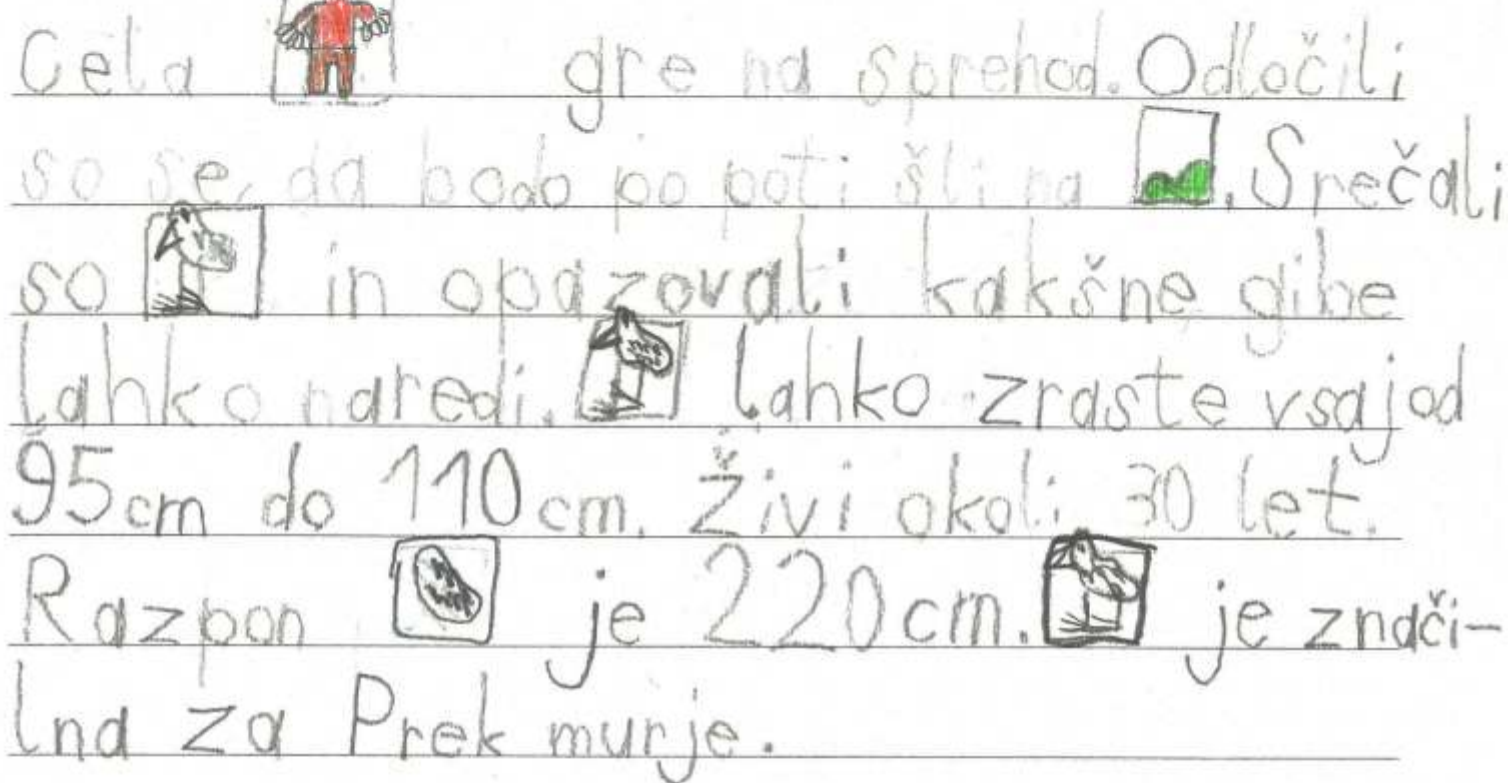 Cela gre na sprehod. Odločili
so se, da bodo po poti šli na . Srečali
so in opazovali kakšne gibe
lahko naredi. lahko zraste vsaj od
95cm do 110cm. Živi okoli 30 let.
Razpon je 220cm. je znači-
lna za Prekmurje.